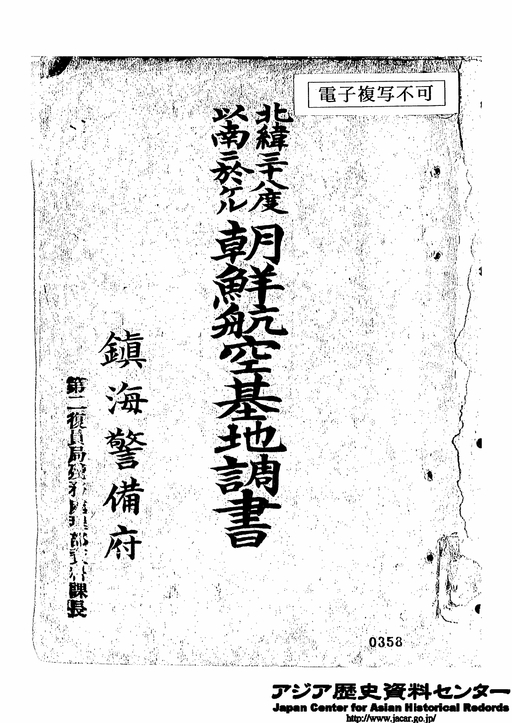 電子複写不可
北緯三十八度
以南ニ於ケル
朝鮮航空基地調書
鎮海警備府
第二復員局残務處理部資料課長
0358
アジア歴史資料センター
Japan Center for Asian Historical Records
http://www.jacar.go.jp/